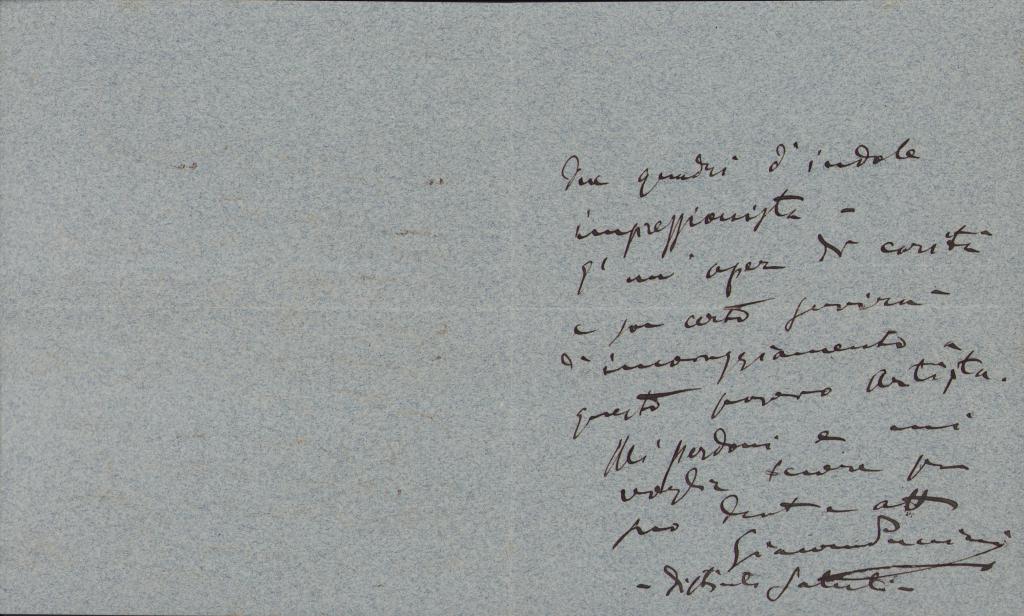 due quadri d'indole
impressionista –
È un' opera di carità
e son certo servirà
d'incoraggiamento
questo povero artista.
Mi perdoni e mi
voglia tenere per
suo dev.
Giacomo Puccini
– Distinti Saluti –